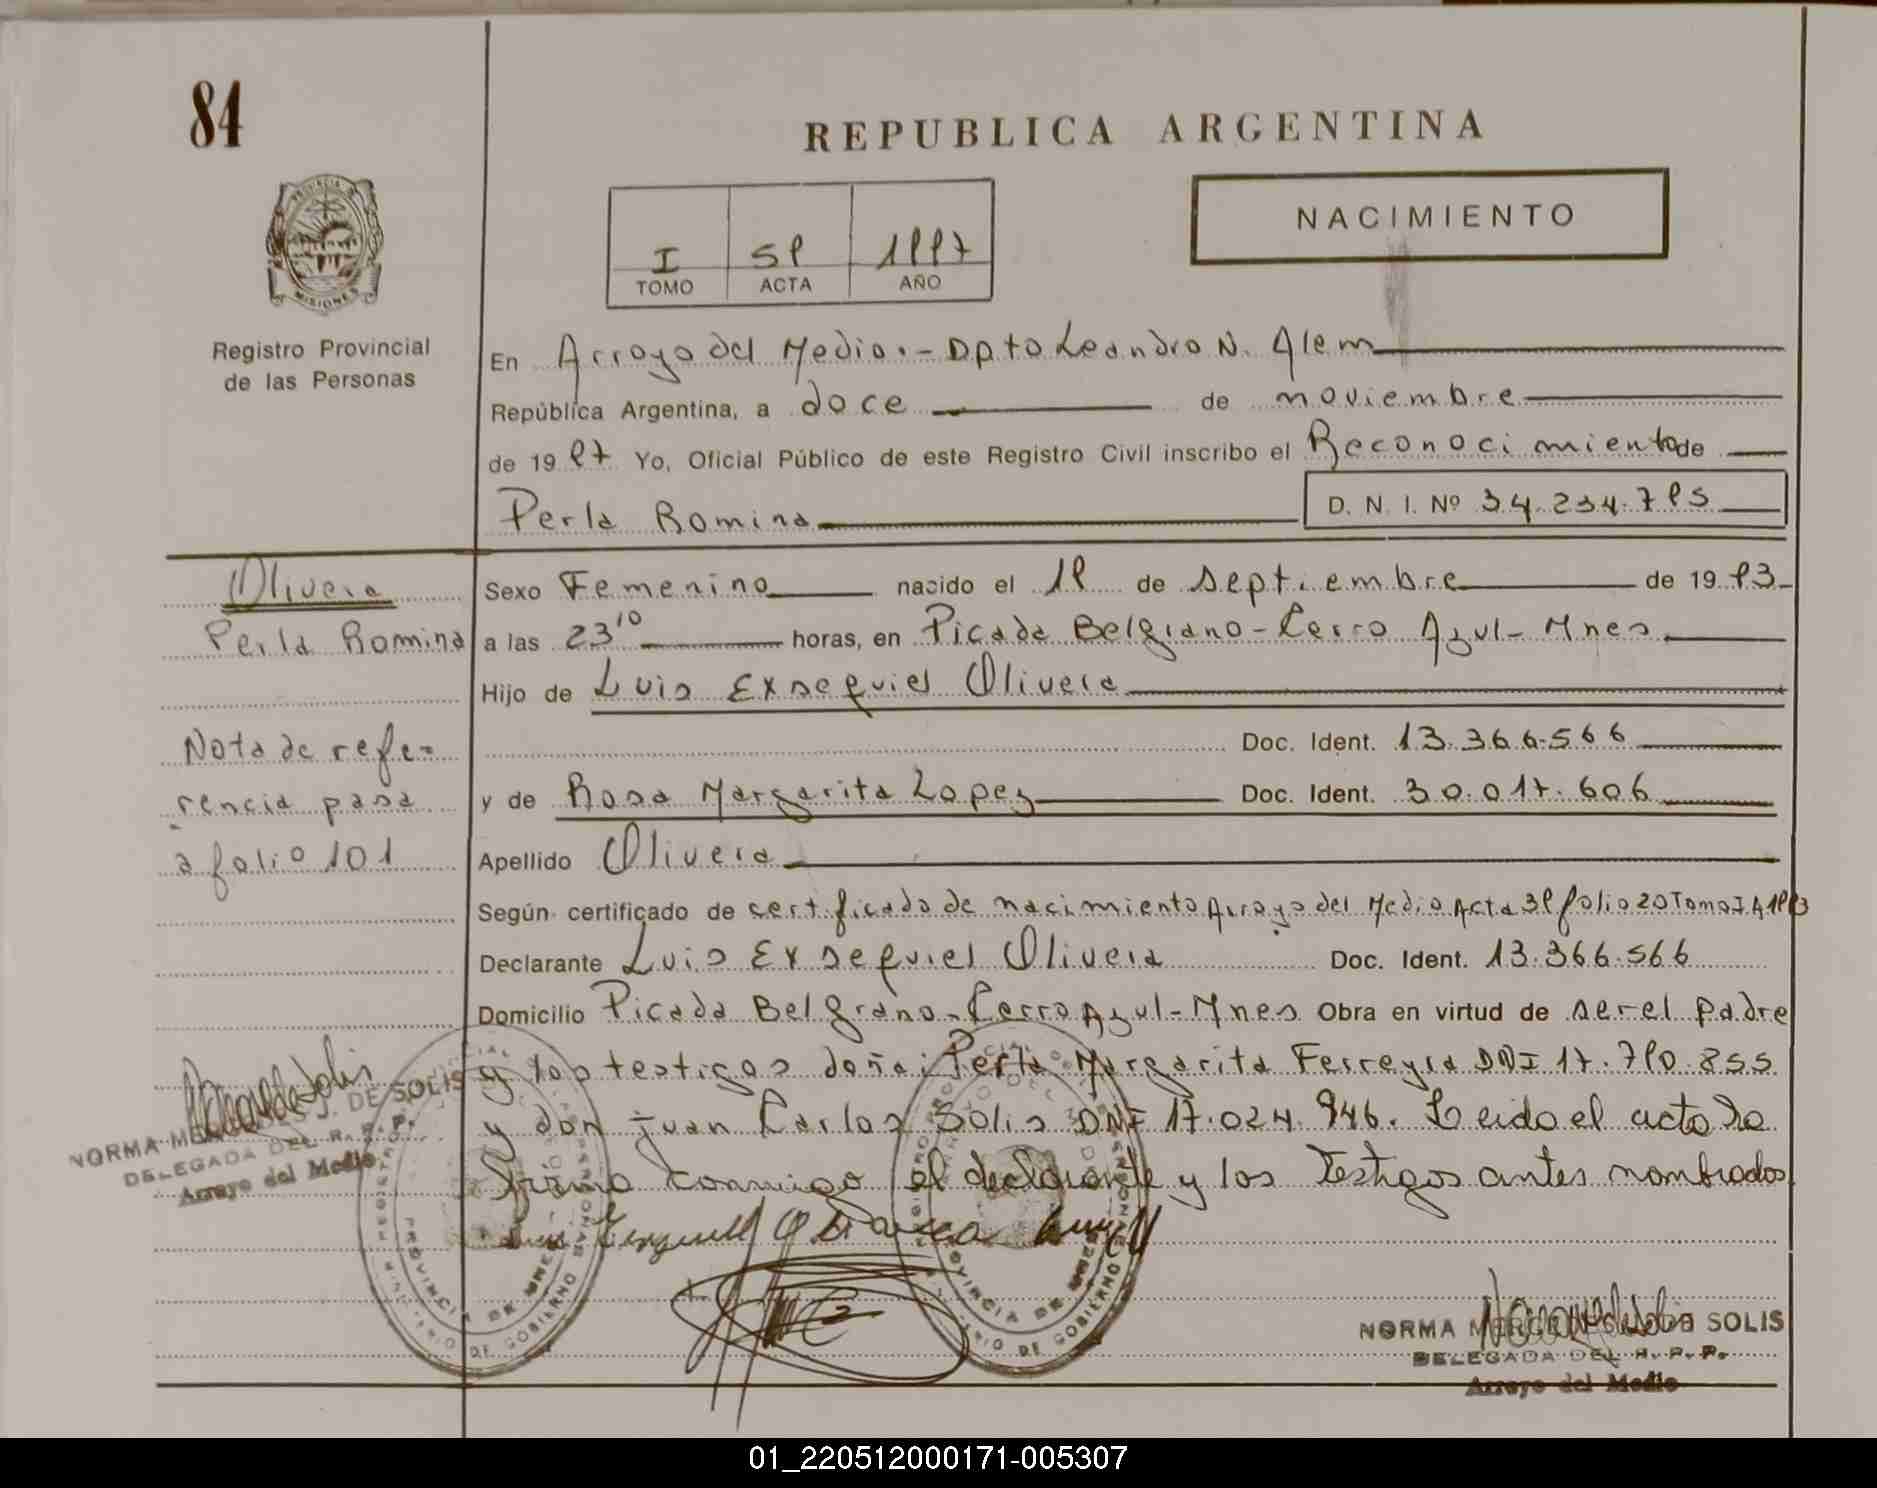 84
REPUBLICA ARGENTINA
NACIMIENTO
I 59 1997
TOMO ACTA AÑO
PROVINCIA DE
MISIONES
Registro Provincial
de las Personas
En Arroyo del Medio.- Dpto Leandro N. Alem
República Argentina, a doce de noviembre
de 19 97 Yo, Oficial Público de este Registro Civil inscribo el Reconocimiento de
Perla Romina D. N. I. Nº 34.234.795
Olivera
Perla Romina
Nota de refe=
rencia pasa
a folio 101
Sexo Femenino nacido el 19 de septiembre de 19 93
a las 23¹⁰ horas, en Picada Belgrano-Cerro Azul-Mnes
Hijo de Luis Exsequiel Olivera
Doc. Ident. 13.366.566
y de Rosa Margarita Lopez Doc. Ident. 30.017.606
Apellido Olivera
Según certificado de certificado de nacimiento Arroyo del Medio Acta 39 folio 20 Tomo I A 1993
Declarante Luis Exsequiel Olivera Doc. Ident. 13.366.566
Domicilio Picada Belgrano-Cerro Azul-Mnes Obra en virtud de ser el padre
y los testigos doña: Perla Margarita Ferreyra DNI 17.790.855
y don Juan Carlos Solis DNI 17.024.946. Leido el acta la
firma conmigo el declarante y los testigos antes nombrados
NORMA MERCEDES J. DE SOLIS
DELEGADA DEL R. P. P.
Arroyo del Medio
PROVINCIA DE MNES
DE GOBIERNO
PROVINCIA DE MNES
DE GOBIERNO
NORMA MERCEDES SOLIS
DELEGADA DEL R. P. P.
Arroyo del Medio
01_220512000171-005307